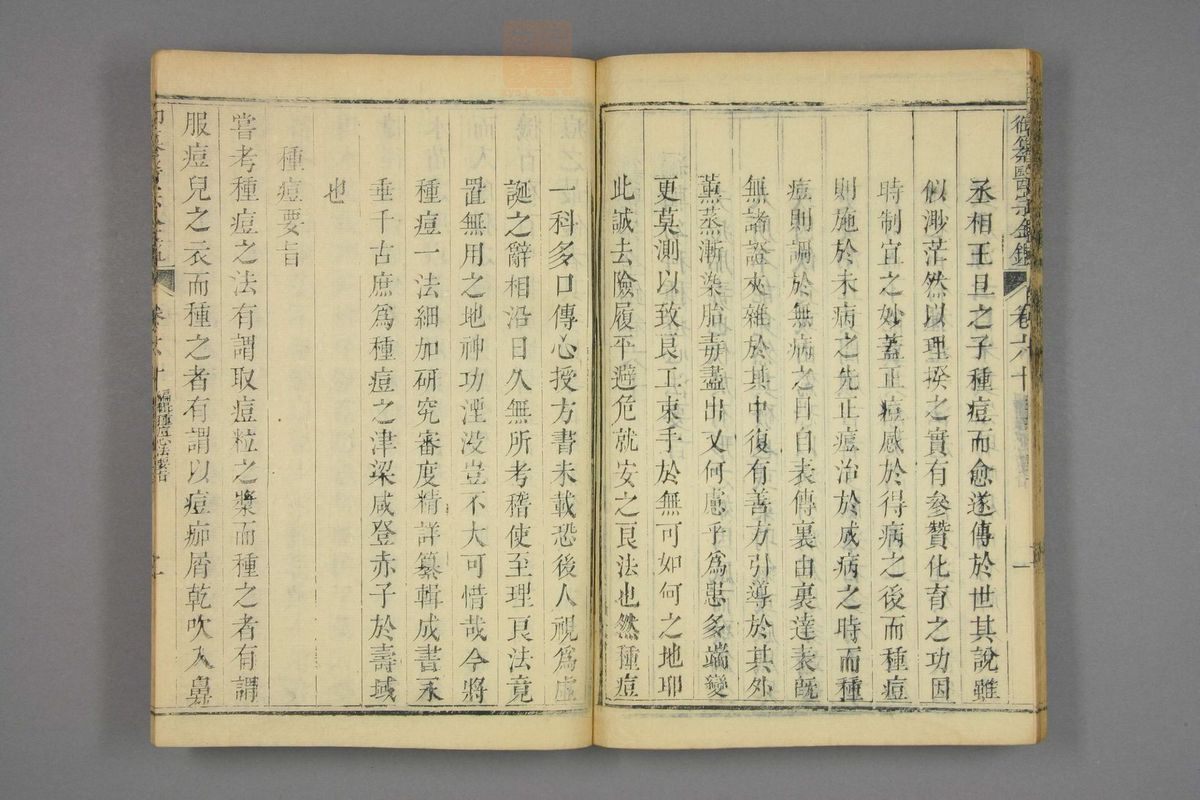 御纂醫宗金鑑
卷六十
一
丞相王旦之子種痘而愈遂傳於世其說雖
似渺茫然以理揆之實有參贊化育之功因
時制宜之妙蓋正痘感於得病之後而種痘
則施於未病之先正痘治於成病之時而種
痘則調於無病之日自表傳裏由裏達表既
無諸證夾雜於其中復有善方引導於其外
薰蒸漸染胎毒盡出又何慮乎爲患多端變
更莫測以致良工束手於無可如何之地耶
此誠去險履平避危就安之良法也然種痘
一科多口傳心授方書未載恐後人視爲虛
誕之辭相沿日久無所考稽使至理良法竟
置無用之地神功湮没豈不大可惜哉今將
種痘一法細加研究審度精詳纂輯成書永
垂千古庶爲種痘之津梁咸登赤子於壽域
也
種痘要旨
嘗考種痘之法有謂取痘粒之漿而種之者有謂
服痘兒之衣而種之者有謂以痘痂屑乾吹入鼻